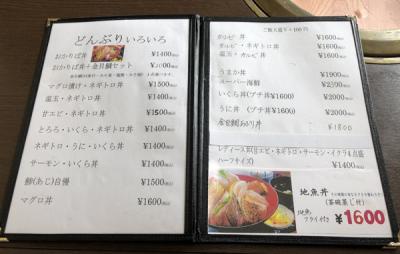 どんぶりいろいろ
おかりば丼 ¥1400
おかりば丼+金目鯛セット
マグロ漬け・ネギトロ丼 ¥1500
温玉・ネギトロ丼 ¥1400
甘エビ・ネギトロ丼 ¥1500
とろろ・いくら・ネギトロ丼 ¥1400
ネギトロ・うに・いくら丼 ¥1400
サーモン・いくら丼 ¥1400
鯵(あじ)自慢 ¥1500
マグロ丼 ¥1600
ご飯大盛り+100円
カルビ 丼 ¥1600
カルビ・ネギトロ丼 ¥1600
温玉・カルビ 丼 ¥1600
うまか丼 ¥1900
スーパー海鮮
いくら丼(プチ丼¥1600) ¥2000
うに丼 (プチ丼¥1600) ¥2000
¥1800
レディース丼(甘エビ・ネギトロ・サーモン・イクラ&点盛
ハーフサイズ) ¥1400
地魚丼
(茶碗蒸し付)
地魚
フライ付き ¥1600